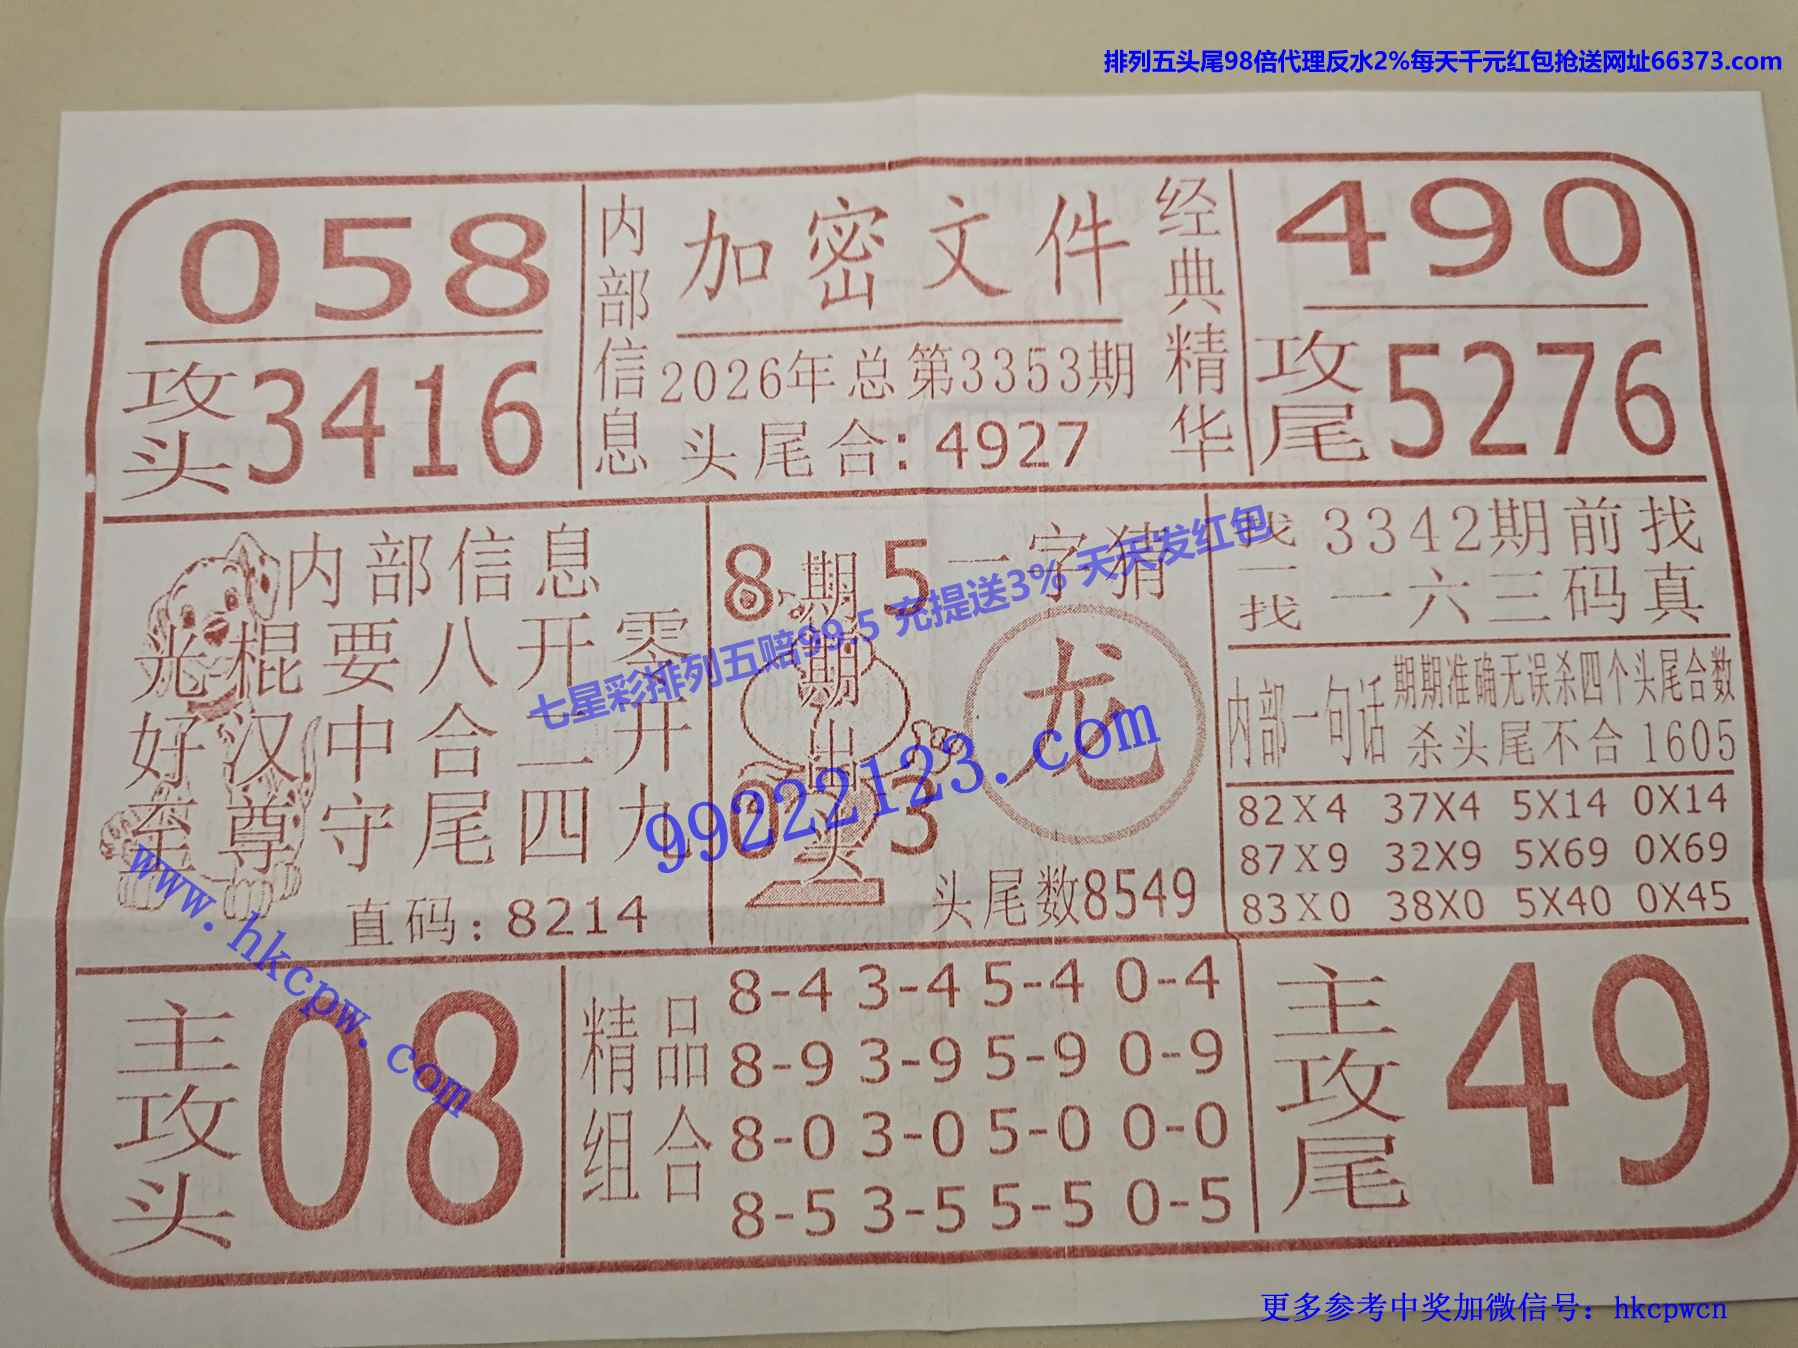 排列五头尾98倍代理反水2%每天千元红包抢送网址66373.com
058
攻头3416
内部信息
加密文件
2026年总第3353期
头尾合:4927
经典精华
490
攻尾5276
内部信息
光棍要八开零
好汉中合二开
至尊守尾四九
直码:8214
8 5
0 3
期期出头
一字猜
龙
头尾数8549
找一找
3342期前找
一六三码真
内部一句话
期期准确无误杀四个头尾合数
杀头尾不合1605
82X4 37X4 5X14 0X14
87X9 32X9 5X69 0X69
83X0 38X0 5X40 0X45
七星彩排列五赔99.5 充提送3% 天天发红包
99222123.com
www.hkcpw.com
主攻头08
精品组合
8-4 3-4 5-4 0-4
8-9 3-9 5-9 0-9
8-0 3-0 5-0 0-0
8-5 3-5 5-5 0-5
主攻尾49
更多参考中奖加微信号：hkcpwcn